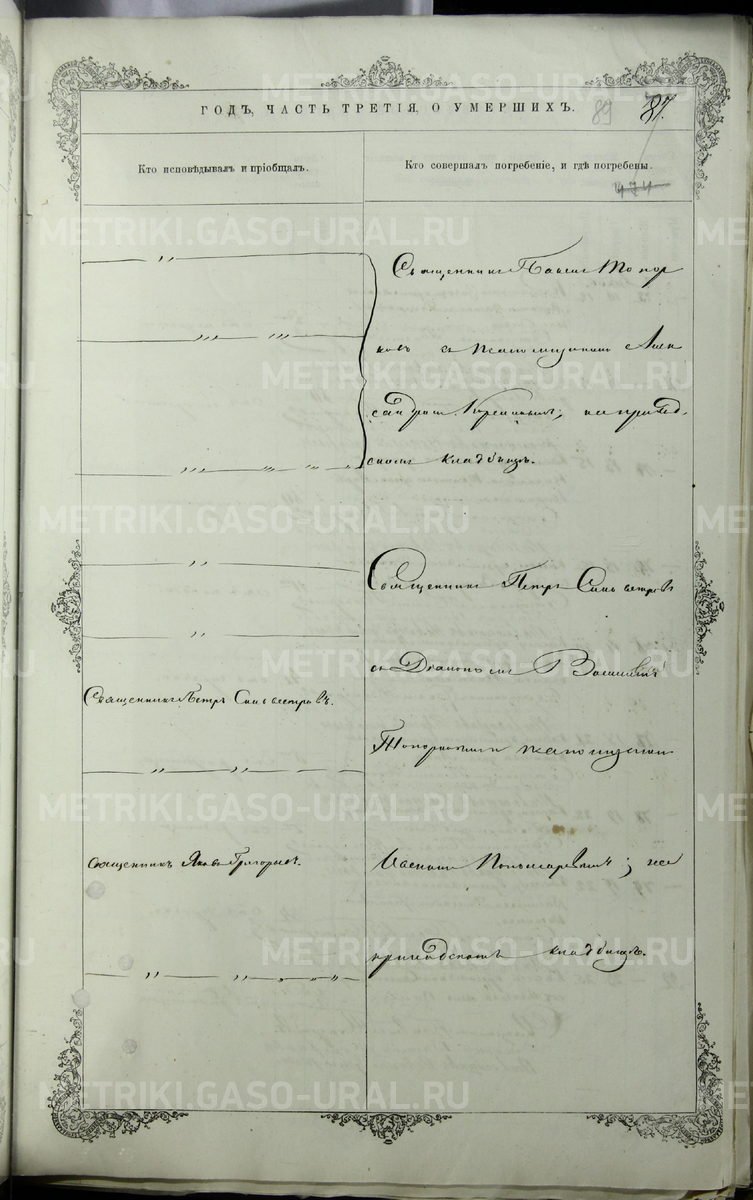 ГОДЪ, ЧАСТЬ ТРЕТІЯ, О УМЕРШИХЪ.
89
87.
Кто исповѣдывалъ и пріобщалъ.
Кто совершалъ погребеніе, и гдѣ погребены.
474
Священникъ Павелъ Топор
ковъ съ псаломщикомъ Алек
сандромъ; на приход
скомъ кладбищѣ.
Священникъ Петръ Сильвестровъ
съ Діакономъ Василіемъ
Священникъ Петръ Сильвестровъ.
Топорковымъ псаломщикомъ
Священникъ Яковъ Григорьевъ.
Иваномъ Пономаревымъ; на
приходскомъ кладбищѣ.
METRIKI.GASO-URAL.RU